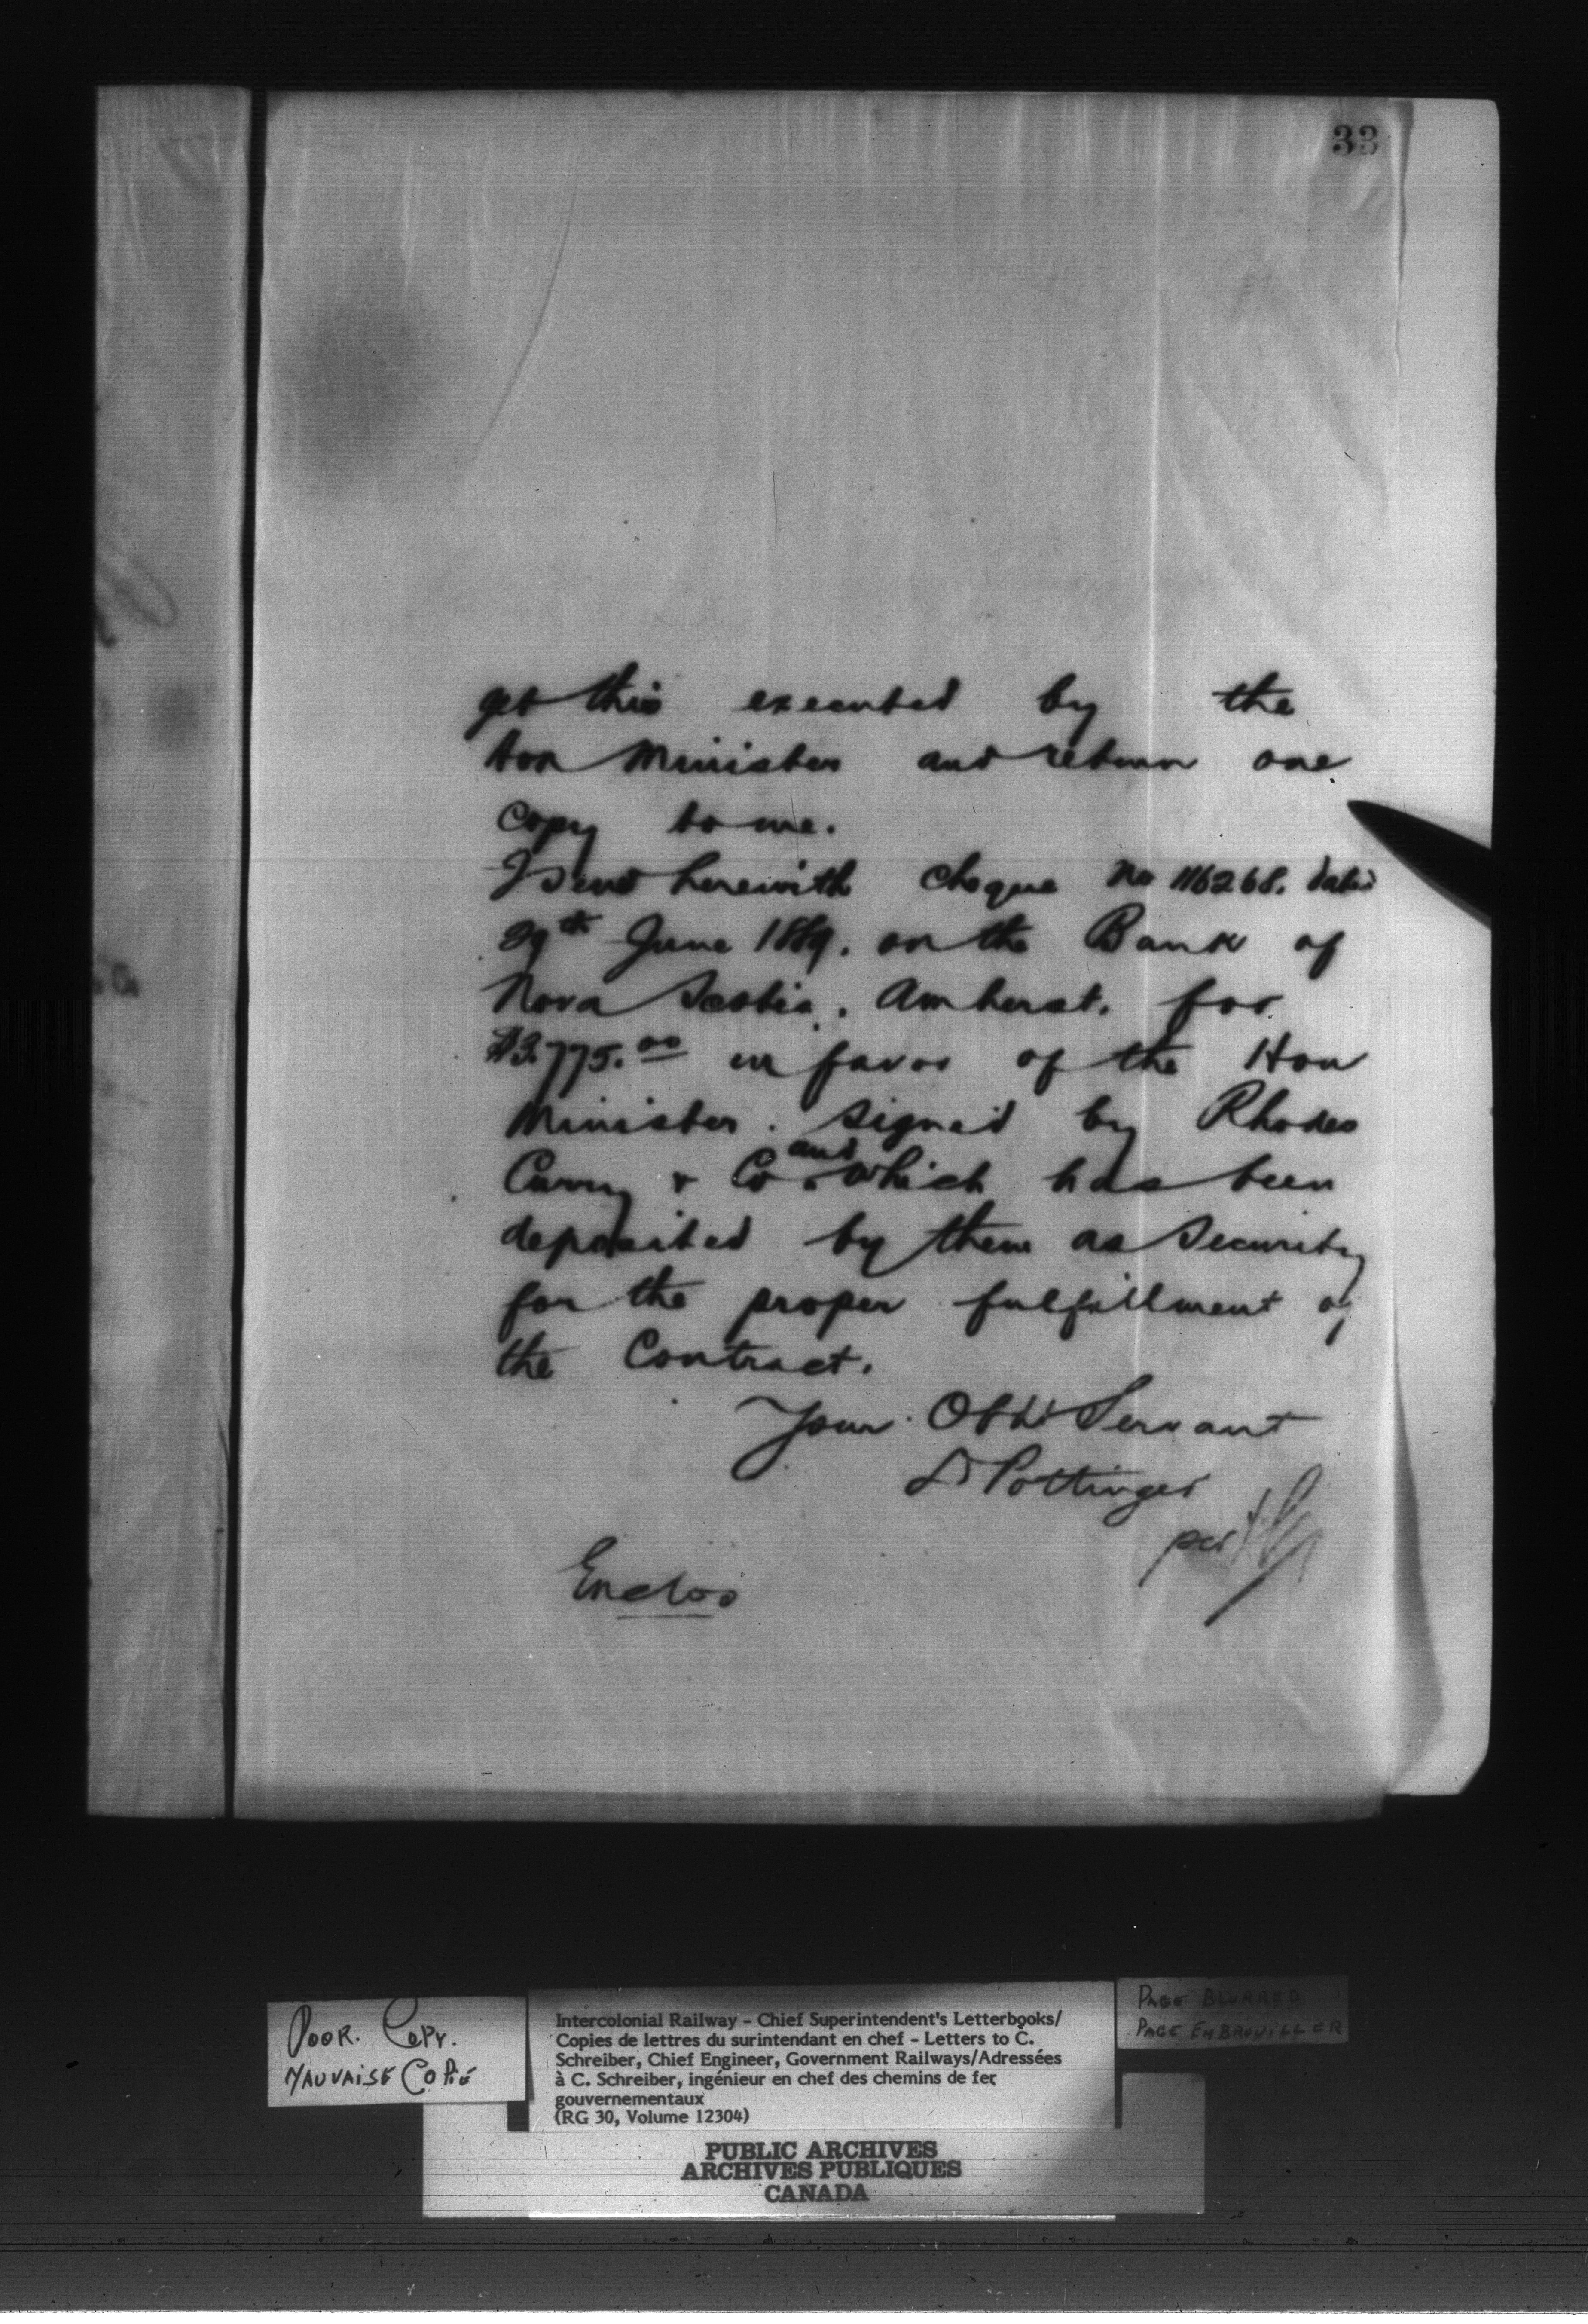 33
get this executed by the
Hon Minister and return one
copy to me.
I send herewith cheque No 116268. dated
29th June 1889. on the Bank of
Nova Scotia. Amherst. for
$3.775.00 in favor of the Hon
Minister. signed by Rhodes
Curry & Co. and which has been
deposited by them as security
for the proper fulfillment of
the Contract.
Your Obdt Servant
D Pottinger
per
Enclos
POOR. COPY.
MAUVAISE COPIE
Intercolonial Railway - Chief Superintendent's Letterbooks/
Copies de lettres du surintendant en chef - Letters to C.
Schreiber, Chief Engineer, Government Railways/Adressées
à C. Schreiber, ingénieur en chef des chemins de fer
gouvernementaux
(RG 30, Volume 12304)
PAGE BLURRED
PAGE EMBROUILLER
PUBLIC ARCHIVES
ARCHIVES PUBLIQUES
CANADA